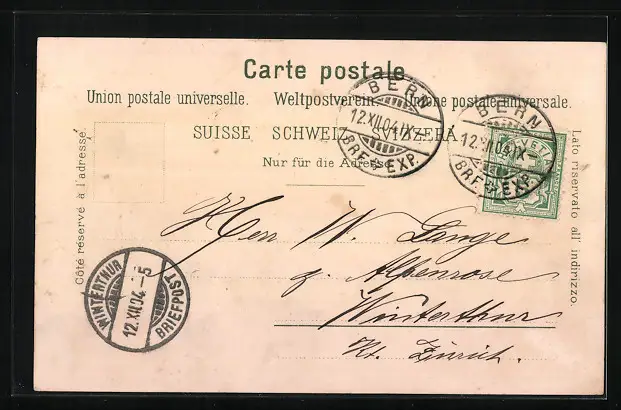 Carte postale.
Union postale universelle. Weltpostverein. Unione postale universale.
SUISSE SCHWEIZ SVIZZERA
Nur für die Adresse
Côté réservé à l'adresse.
Lato riservato all' indirizzo.
BERN
12.XII.04.IX-
BRF. EXP.
BERN
12.XII.04.IX-
BRF. EXP.
Herr W. Lange
z. Alpenrose
Winterthur
Kt. Zürich.
WINTERTHUR
12.XII.04.-5
BRIEFPOST